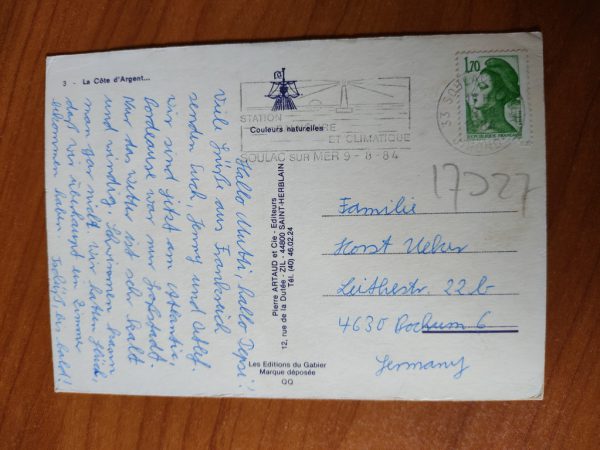 3 - La Côte d'Argent...
Couleurs naturelles
Hallo Mutti, hallo Depsi!
Viele Grüße aus Frankreich
senden Euch, Jenny und Detlef.
wir sind jetzt am Atlantic,
Bordeause war nur
Nur das Wetter ist sehr kalt
und windig. Schwimmen kann
man gar nicht. Wir hatten Glück,
daß wir überhaupt ein Zimmer
bekommen haben. bis bald!
Pierre ARTAUD et Cie - Editeurs
12, rue de la Dutée - ZIL - 44800 SAINT-HERBLAIN
Tél. (40) 46.02.24
Les Editions du Gabier
Marque déposée
QQ
STATION
ET CLIMATIQUE
SOULAC SUR MER 9-8-84
33
1,70
REPUBLIQUE FRANÇAISE
17527
Familie
Horst Ueker
Leithestr. 22b
4630 Bochum 6
Germany